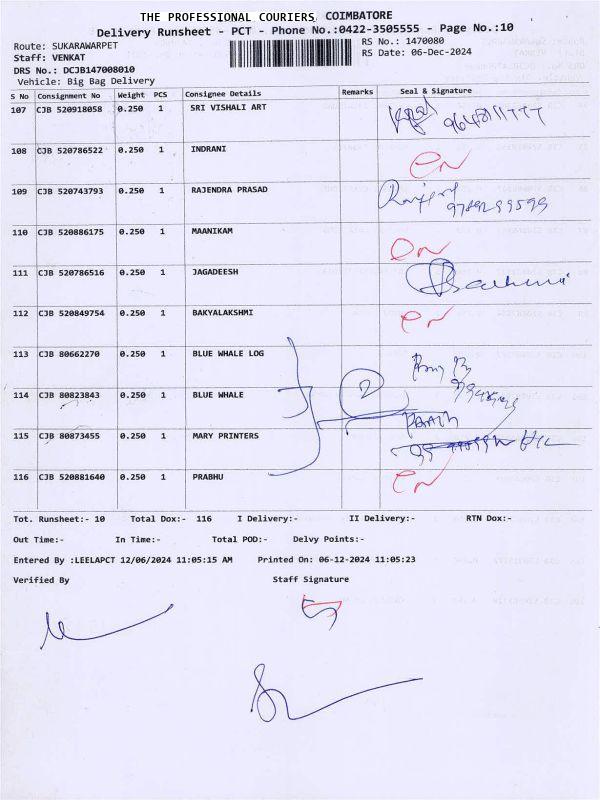 THE PROFESSIONAL COURIERS, COIMBATORE
Delivery Runsheet - PCT - Phone No.:0422-3505555 - Page No.:10
Route: SUKARAWARPET
RS No.: 1470080
Staff: VENKAT
RS Date: 06-Dec-2024
DRS No.: DCJB147008010
Vehicle: Big Bag Delivery
S No Consignment No Weight PCS Consignee Details Remarks Seal & Signature
107 CJB 520918058 0.250 1 SRI VISHALI ART
108 CJB 520786522 0.250 1 INDRANI
109 CJB 520743793 0.250 1 RAJENDRA PRASAD
110 CJB 520886175 0.250 1 MAANIKAM
111 CJB 520786516 0.250 1 JAGADEESH
112 CJB 520849754 0.250 1 BAKYALAKSHMI
113 CJB 80662270 0.250 1 BLUE WHALE LOG
114 CJB 80823843 0.250 1 BLUE WHALE 2
115 CJB 80873455 0.250 1 MARY PRINTERS
116 CJB 520881640 0.250 1 PRABHU
Tot. Runsheet:- 10 Total Dox:- 116 I Delivery:- II Delivery:- RTN Dox:-
Out Time:- In Time:- Total POD:- Delvy Points:-
Entered By :LEELAPCT 12/06/2024 11:05:15 AM Printed On: 06-12-2024 11:05:23
Verified By Staff Signature